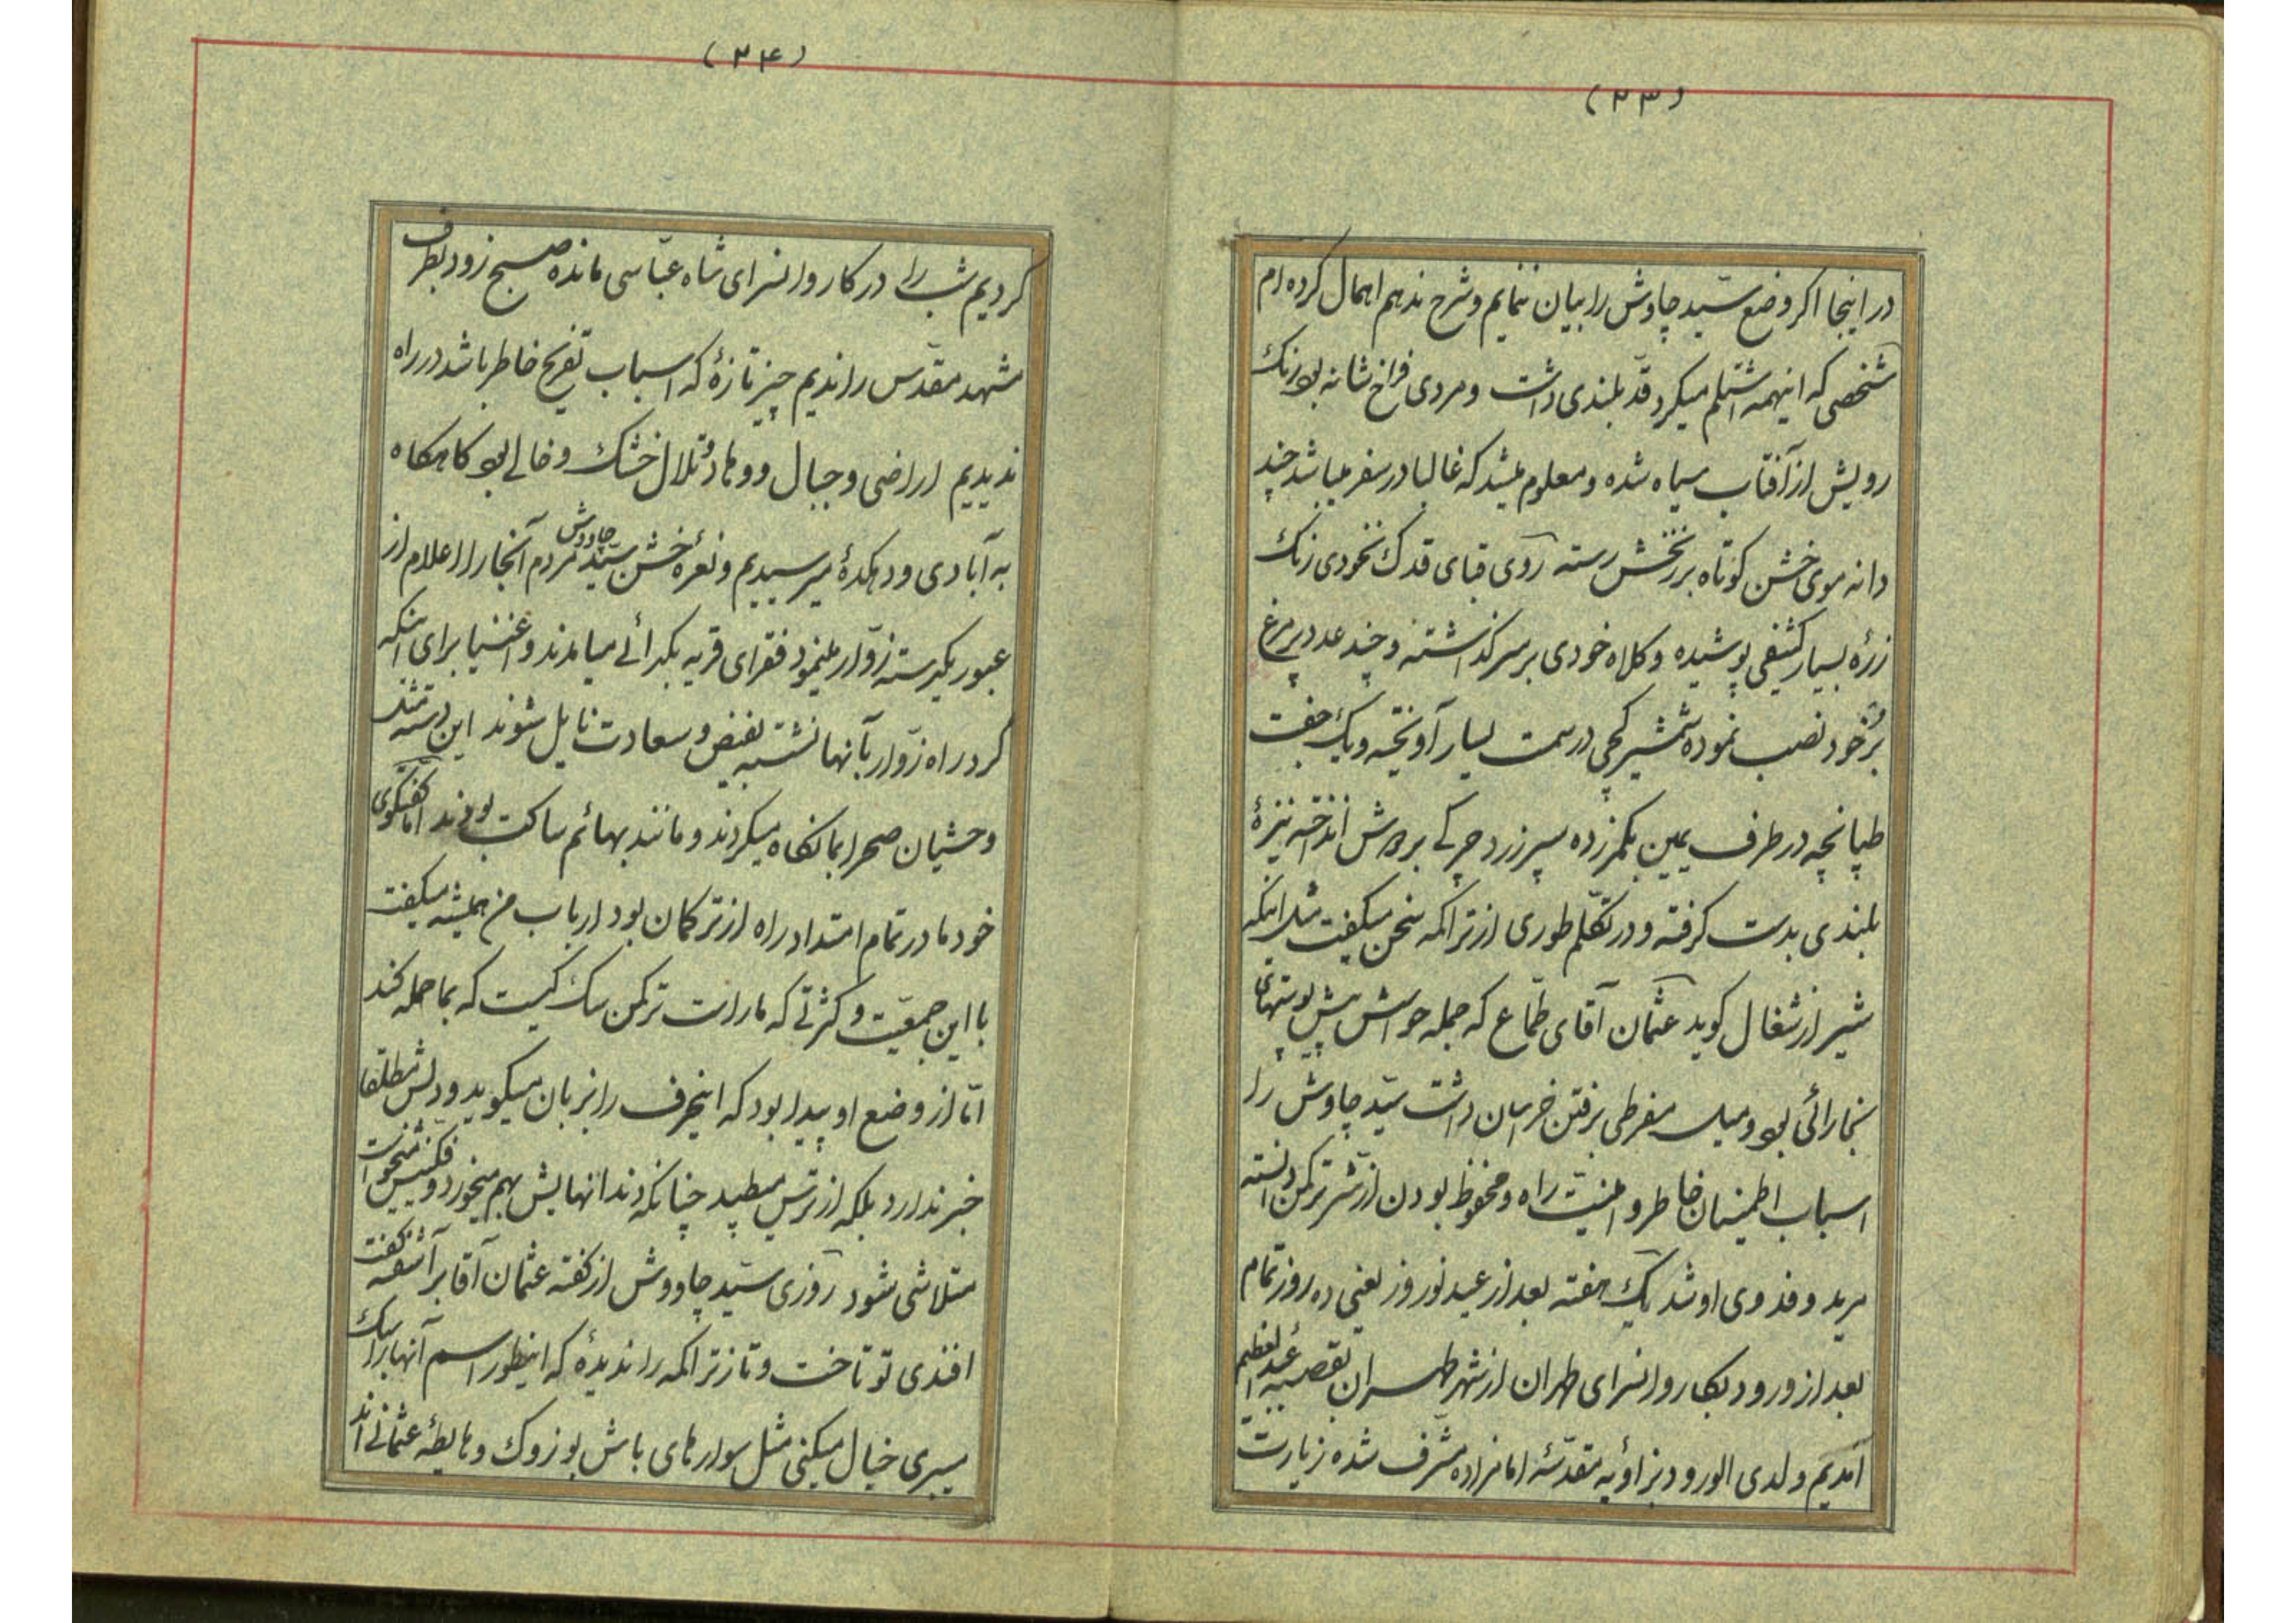 (۲۳)
در اینجا اکر وضع سیّد چاوش را بیان ننمایم و شرح ندهم اهمال کرده ام
شخصی که اینهمه اشتلم میکرد قدّ بلندی داشت و مردی فراخ شانه بود رنک
رویش از آفتاب سیاه شده و معلوم میشد که غالبا در سفر میباشد چند
دانه موی خشن کوتاه بر زنخش رسته روی قبای قدک نخودی رنک
زرهٔ بسیار کثیفی پوشیده و کلاه خودی بر سر کذاشته و چند عدد پر مرغ
بر خود نصب نموده شمشیر کجی در سمت یسار آویخته و یک جفت
طپانچه در طرف یمین بکمر زده سپر زرد چرکی بر دوش انداخته نیزهٔ
بلندی بدست کرفته و در تکلّم طوری از تراکمه سخن میکفت مثل اینکه
شیر از شغال کوید عثمان آقای طمّاع که جمله حواسش پیش پوستهای
بخارائی بود و میل مفرطی برفتن خراسان داشت سیّد چاوش را
اسباب اطمینان خاطر و امنیّت راه و محفوظ بودن از شرّ ترکمن دانسته
مرید و فدوی او شد یک هفته بعد از عید نوروز یعنی ده روز تمام
بعد از ورود بکاروانسرای طهران از شهر طهران بقصبهٔ عبد العظیم
آمدیم ولدی الورود بزاویه مقدّسهٔ امامزاده مشرّف شده زیارت
(۲۴)
کردیم شب را در کاروانسرای شاه عبّاسی مانده صبح زود بطرف
مشهد مقدّس راندیم چیز تازهٔ که اسباب تفریح خاطر باشد در راه
ندیدیم اراضی و جبال و وهاد و تلال خشک و خالی بود کاهکاه
به آبادی و دهکدهٔ میرسیدیم و نعرهٔ خشن سیّد چاووش مردم آنجا را اعلام از
عبور یکدسته زوّار مینمود فقرای قریه بکدائی میامدند و اغنیا برای اینکه
کرد راه زوّار بآنها نشسته بفیض و سعادت نایل شوند این دسته مثل
وحشیان صحرا بما نکاه میکردند و مانند بهائم ساکت بودند امّا کفتکوی
خود ما در تمام امتداد راه از ترکمان بود ارباب من همیشه میکفت
با این جمعیّت و کثرتی که ما راست ترکمن سک کیست که بما حمله کند
امّا از وضع او پیدا بود که اینحرف را بزبان میکوید و دلش مطلقا
خبر ندارد بلکه از ترس میطپد چنانکه دندانهایش بهم میخورد و نفسش میخواست
متلاشی شود روزی سیّد چاووش از کفته عثمان آقا بر آشفته کفت
افندی تو تاخت و تاز تراکمه را ندیدهٔ که اینطور اسم آنها را سبک
میبری خیال میکنی مثل سوارهای باش بوزوک و هایطهٔ عثمانی اند